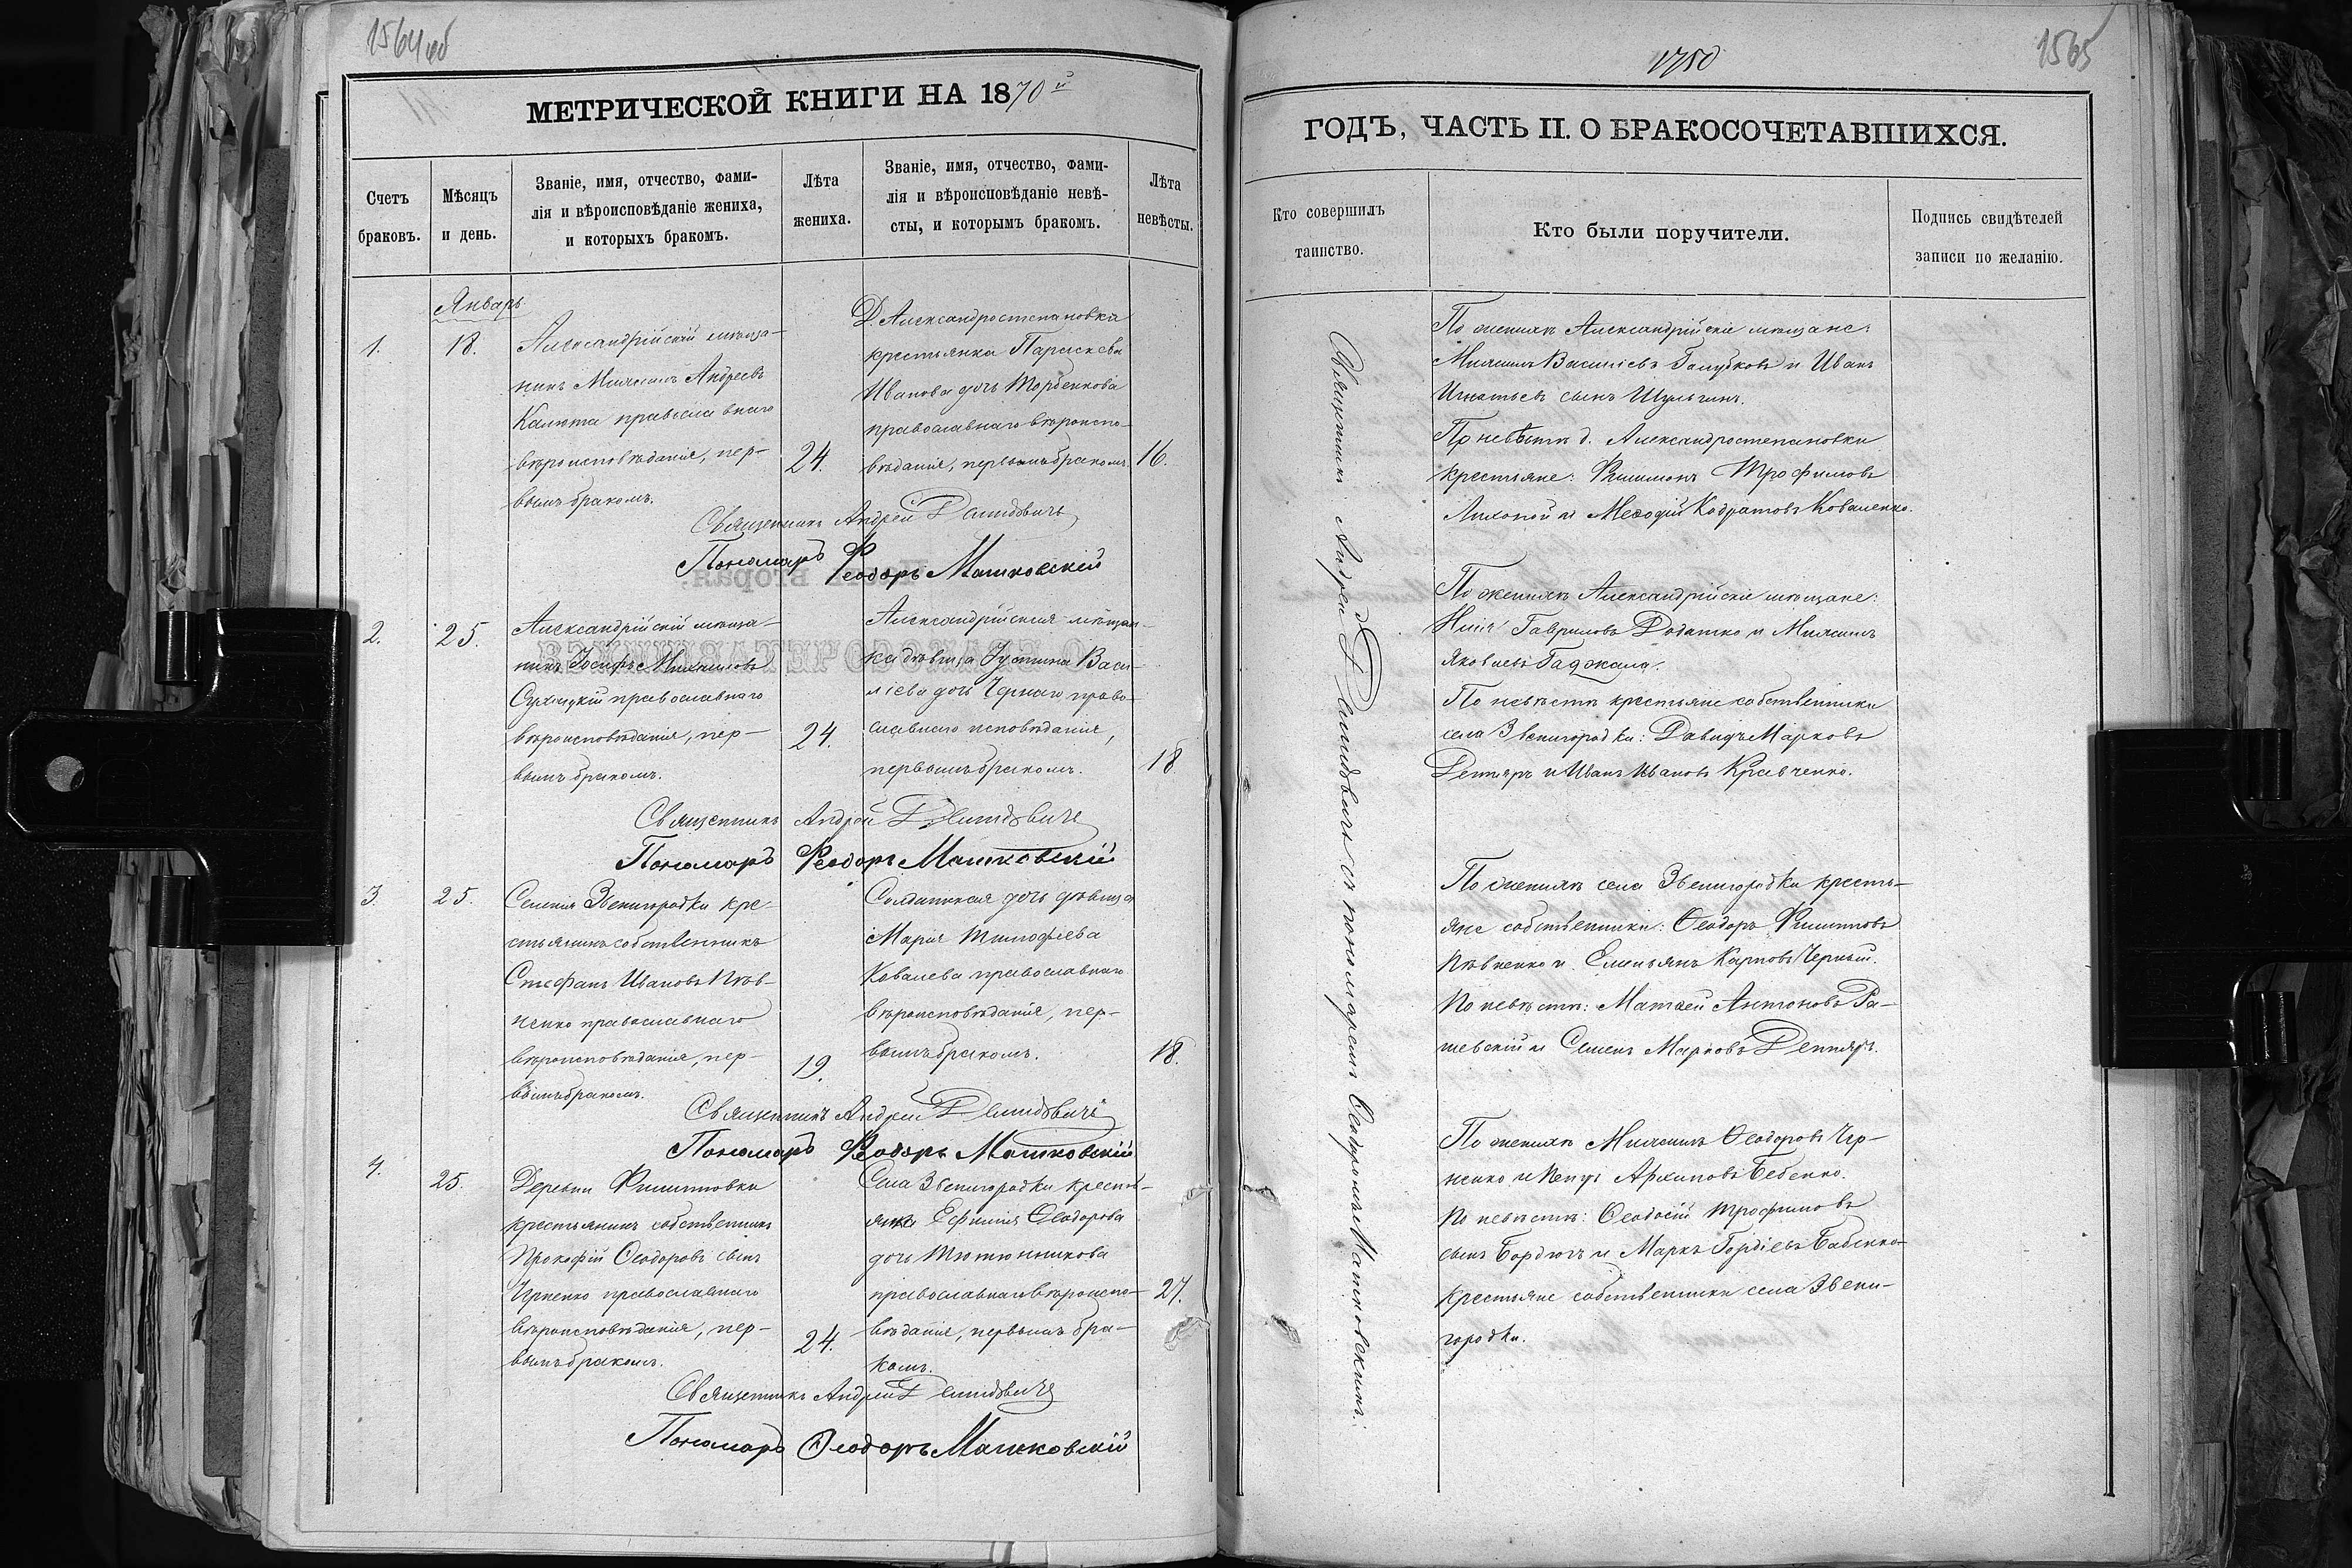 1564 об
МЕТРИЧЕСКОЙ КНИГИ НА 1870й
Счетъ браковъ.
Мѣсяцъ и день.
Званіе, имя, отчество, фами-
лія и вѣроисповѣданіе жениха,
и которыхъ бракомъ.
Лѣта жениха.
Званіе, имя, отчество, фами-
лія и вѣроисповѣданіе невѣ-
сты, и которымъ бракомъ.
Лѣта невѣсты.
Январь
1.
18.
Александрійскій мѣща-
нинъ Михаилъ Андреевъ
Калюта православнаго
вѣроисповѣданія, пер-
вымъ бракомъ.
24.
Д. Александростепановки
крестьянка Параскева
Иванова дочь Торбенкова
православнаго вѣроиспо-
вѣданія, первымъ бракомъ.
16.
Священникъ Андрей Демидовичъ
Пономарь Ѳеодоръ Машковскій
2.
25.
Александрійскій мѣща-
нинъ Іосифъ Михаиловъ
православнаго
вѣроисповѣданія, пер-
вымъ бракомъ.
24.
Александрійская мѣщан-
ка дѣвица Іустина Васи-
ліева дочь Чернаго право-
славнаго исповѣданія,
первымъ бракомъ.
18
Священникъ Андрей Демидовичъ
Пономарь Ѳеодоръ Машковскій
3.
25.
Селенія Звенигородки кре-
стьянинъ собственникъ
Стефанъ Ивановъ Пѣв-
ненко православнаго
вѣроисповѣданія, пер-
вымъ бракомъ.
19.
Солдатская дочь дѣвица
Марія Тимофѣева
Ковалева православнаго
вѣроисповѣданія, пер-
вымъ бракомъ.
18.
Священникъ Андрей Демидовичъ
Пономарь Ѳеодоръ Машковскій
4.
25.
Деревни Филиповки
крестьянинъ собственникъ
Прокофій Ѳеодоровъ сынъ
православнаго
вѣроисповѣданія, пер-
вымъ бракомъ.
24.
Села Звенигородки кресть-
янка Ефимія Ѳеодорова
дочь Тютюнникова
православнаго вѣроиспо-
вѣданія, первымъ бра-
комъ.
27.
Священникъ Андрей Демидовичъ
Пономарь Ѳеодоръ Машковскій
1750
1565
ГОДЪ, ЧАСТЬ II. О БРАКОСОЧЕТАВШИХСЯ.
Кто совершилъ таинство.
Кто были поручители.
Подпись свидѣтелей записи по желанію.
Священникъ Андрей Демидовичъ съ пономаремъ Ѳеодоромъ Машковскимъ.
По женихѣ Александрійскіе мѣщане:
Михаилъ Василіевъ Голубковъ и Иванъ
Игнатьевъ сынъ Шульгинъ.
По невѣстѣ д. Александростепановки
крестьяне: Филимонъ Трофимовъ
Лихопой и Меѳодій Кодратовъ Коваленко.
По женихѣ Александрійскіе мѣщане:
Гавриловъ Додатко и Михаилъ
Яковлевъ
По невѣстѣ крестьяне собственники
села Звенигородки: Давидъ Марковъ
Дехтяръ и Иванъ Ивановъ Кравченко.
По женихѣ села Звенигородки кресть-
яне собственники: Ѳеодоръ Филиповъ
Пѣвненко и Емельянъ Карповъ Черный.
По невѣстѣ: Матѳей Антоновъ Ра-
шевскій и Семенъ Марковъ Дехтяръ.
По женихѣ Михаилъ Ѳеодоровъ Чер-
ненко и Петръ Архиповъ Бебенко.
По невѣстѣ: Ѳеодосій Трофимовъ
сынъ Бордюгъ и Маркъ Гордіевъ Бабенко
крестьяне собственники села Звени-
городки.